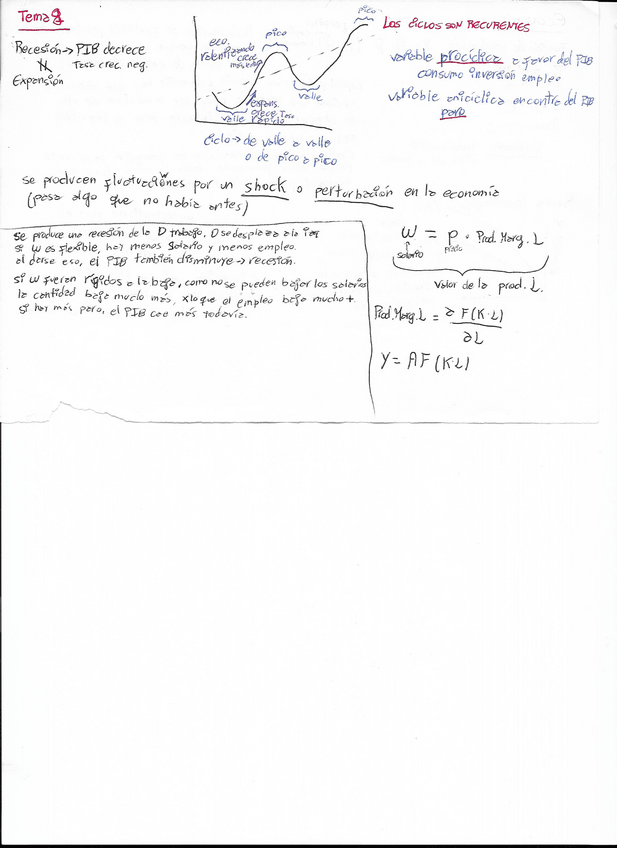 Tema
Recesión → PIB decrece
Tasa crec. neg.
Expansión
eco.
ralentizando
crece
más lento
pico
pico
valle
expans.
crece Tasa
rápido
valle
ciclo → de valle a valle
o de pico a pico
LOS CICLOS SON RECURENTES
variable procíclica a favor del PIB
consumo inversión empleo
variable aniciclica en contra del PIB
paro
se producen fluctuaciones por un shock o perturbación en la economía
(pasa algo que no había antes)
se produce una recesión de la D trabajo. D se desplaza a la izq
si W es flexible, hay menos salario y menos empleo.
al darse eso, el PIB también disminuye → recesión.
si W fueran rígidos a la baja, como no se pueden bajar los salarios
la cantidad baja mucho más, xlo que el empleo baja mucho +.
si hay más paro, el PIB cae más todavía.
W = P · Prod. Marg. L
salario
precio
valor de la prod. L.
Prod. Marg. L = ∂ F(K·L)
∂L
Y = AF(K·L)